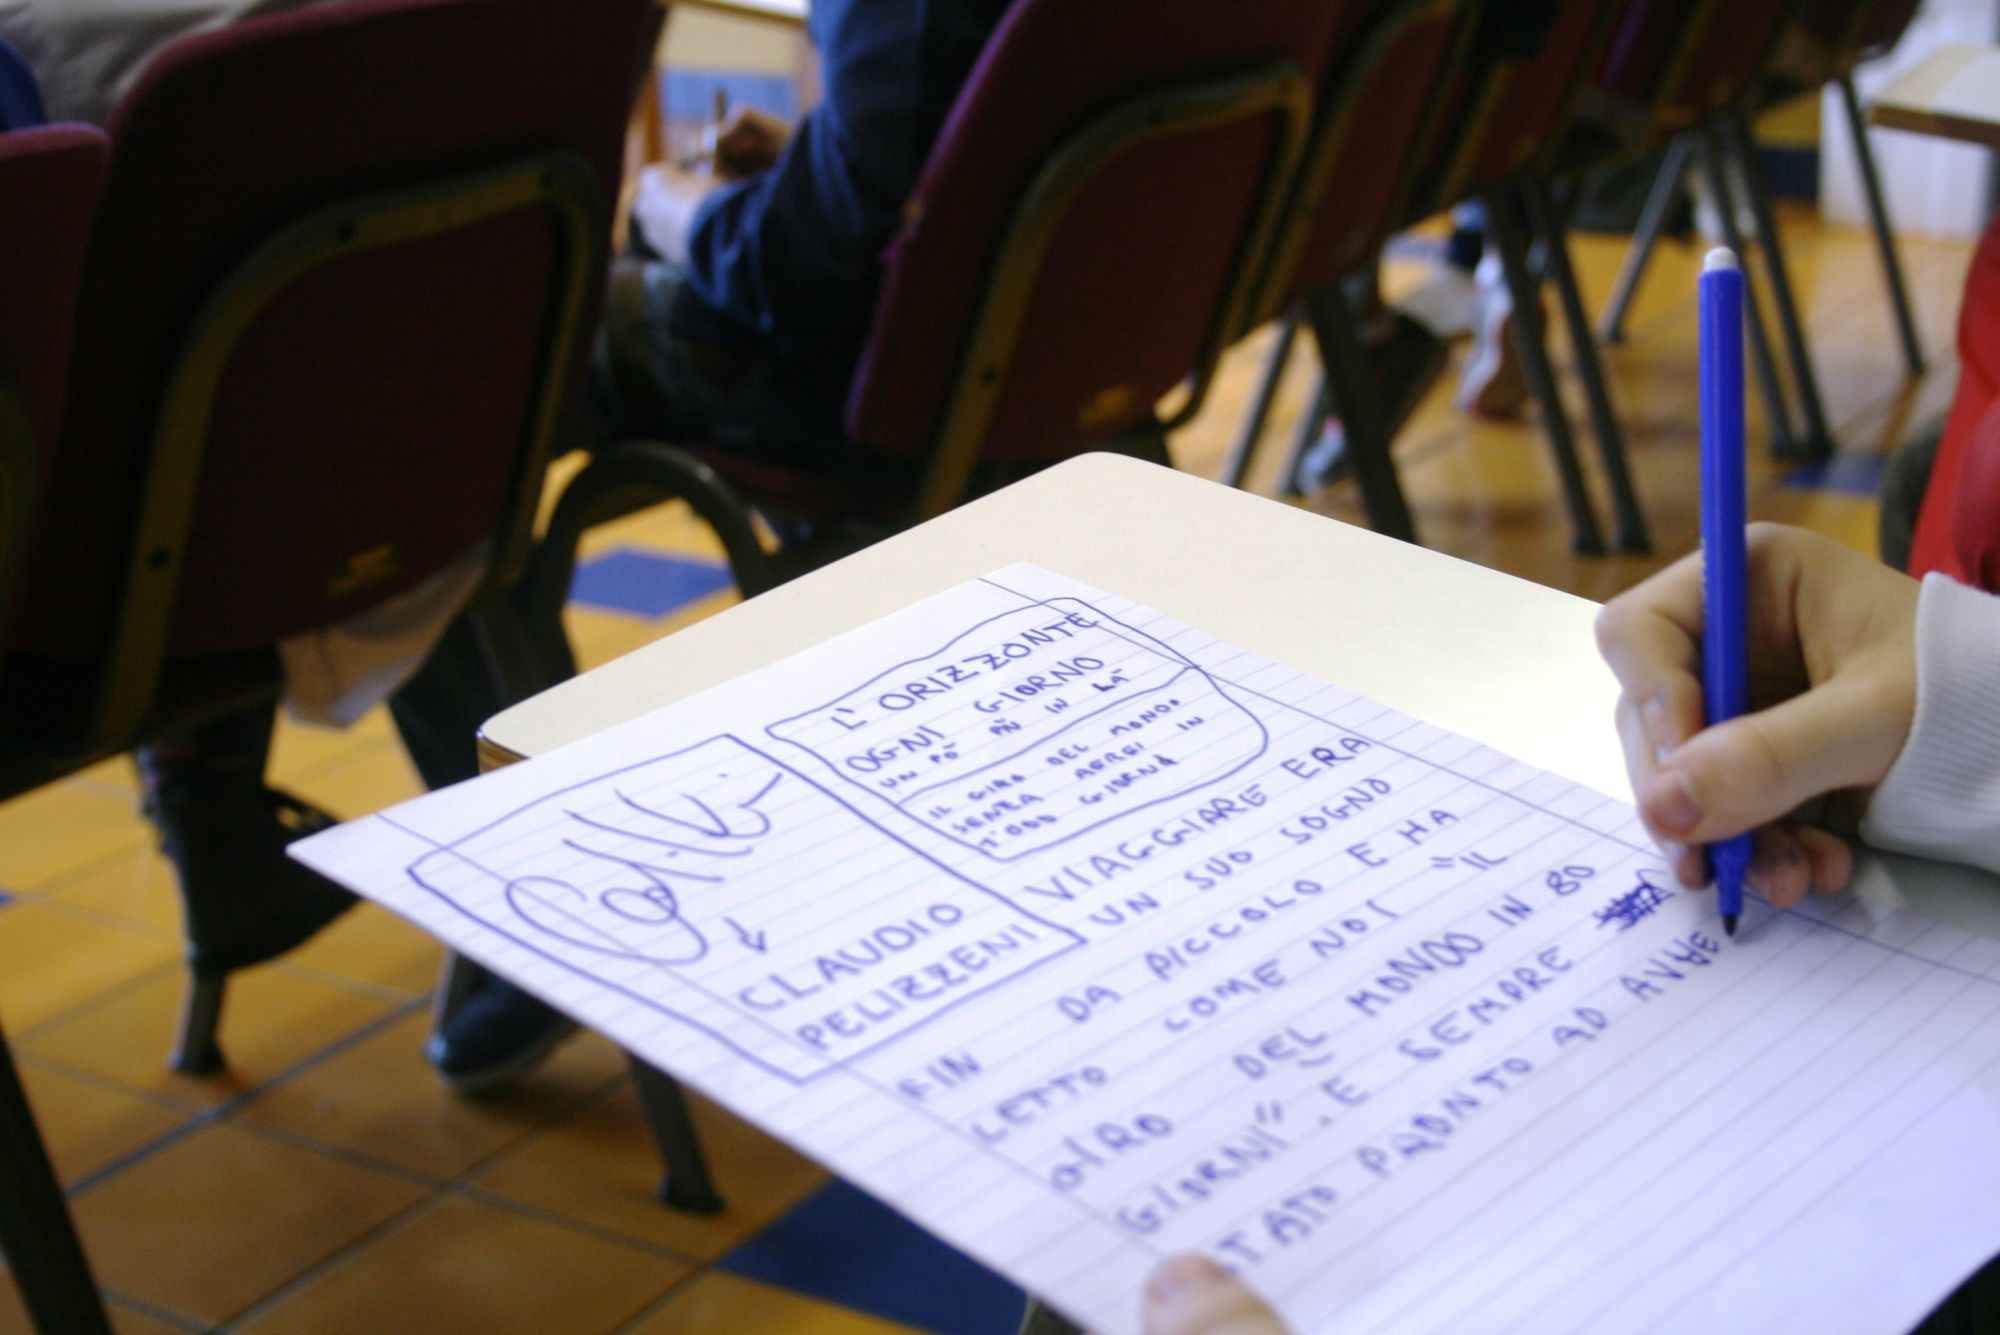 L'ORIZZONTE
OGNI GIORNO
UN PÒ PIÙ IN LÀ
IL GIRO DEL MONDO
SENZA AEREI IN
1'000 GIORNI
CLAUDIO
PELIZZENI
VIAGGIARE ERA
UN SUO SOGNO
FIN DA PICCOLO E HA
LETTO COME NOI "IL
GIRO DEL MONDO IN 80
GIORNI". È SEMPRE
STATO PRONTO AD AVAE